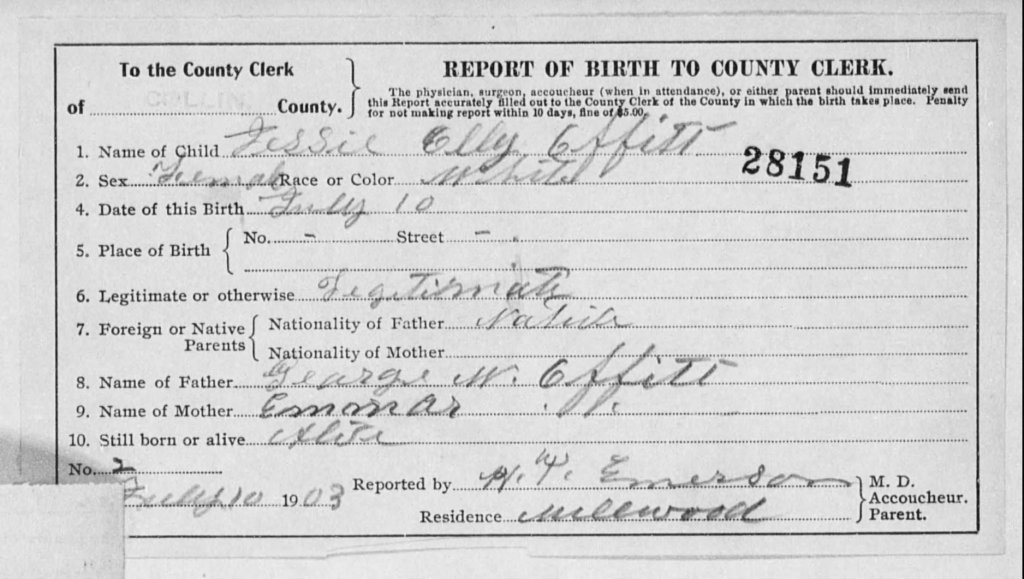 To the County Clerk
of COLLIN County.
REPORT OF BIRTH TO COUNTY CLERK.
The physician, surgeon, accoucheur (when in attendance), or either parent should immediately send
this Report accurately filled out to the County Clerk of the County in which the birth takes place. Penalty
for not making report within 10 days, fine of $5.00.
1. Name of Child Jessie Elly Offitt
28151
2. Sex Female Race or Color White
4. Date of this Birth July 10
5. Place of Birth { No. - Street -
6. Legitimate or otherwise Legitimate
7. Foreign or Native Parents { Nationality of Father Native
Nationality of Mother
8. Name of Father George W. Offitt
9. Name of Mother Emmar " "
10. Still born or alive Alive
No. 2
July 10 1903
Reported by H. Y. Emerson } M. D.
Accoucheur.
Residence Millwood Parent.